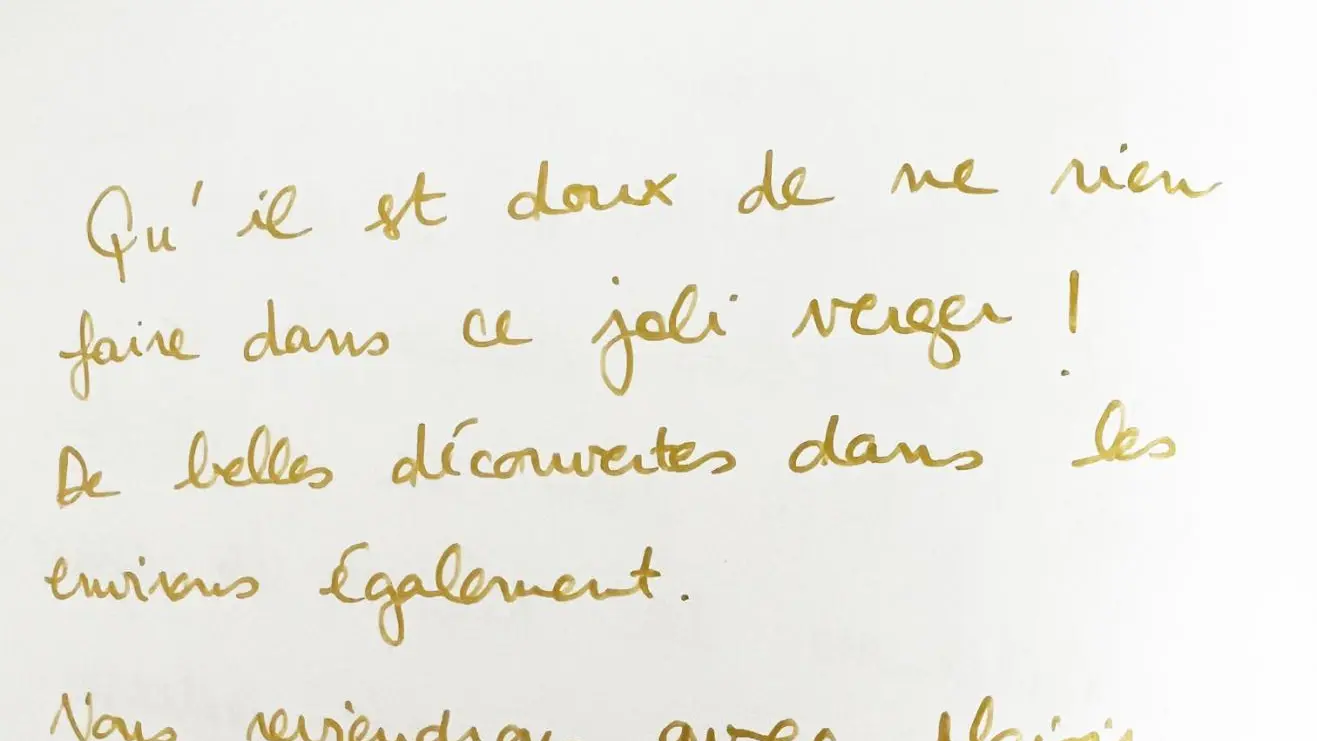 Qu'il est doux de ne rien
faire dans ce joli verger !
De belles découvertes dans les
environs également.
Nous avec